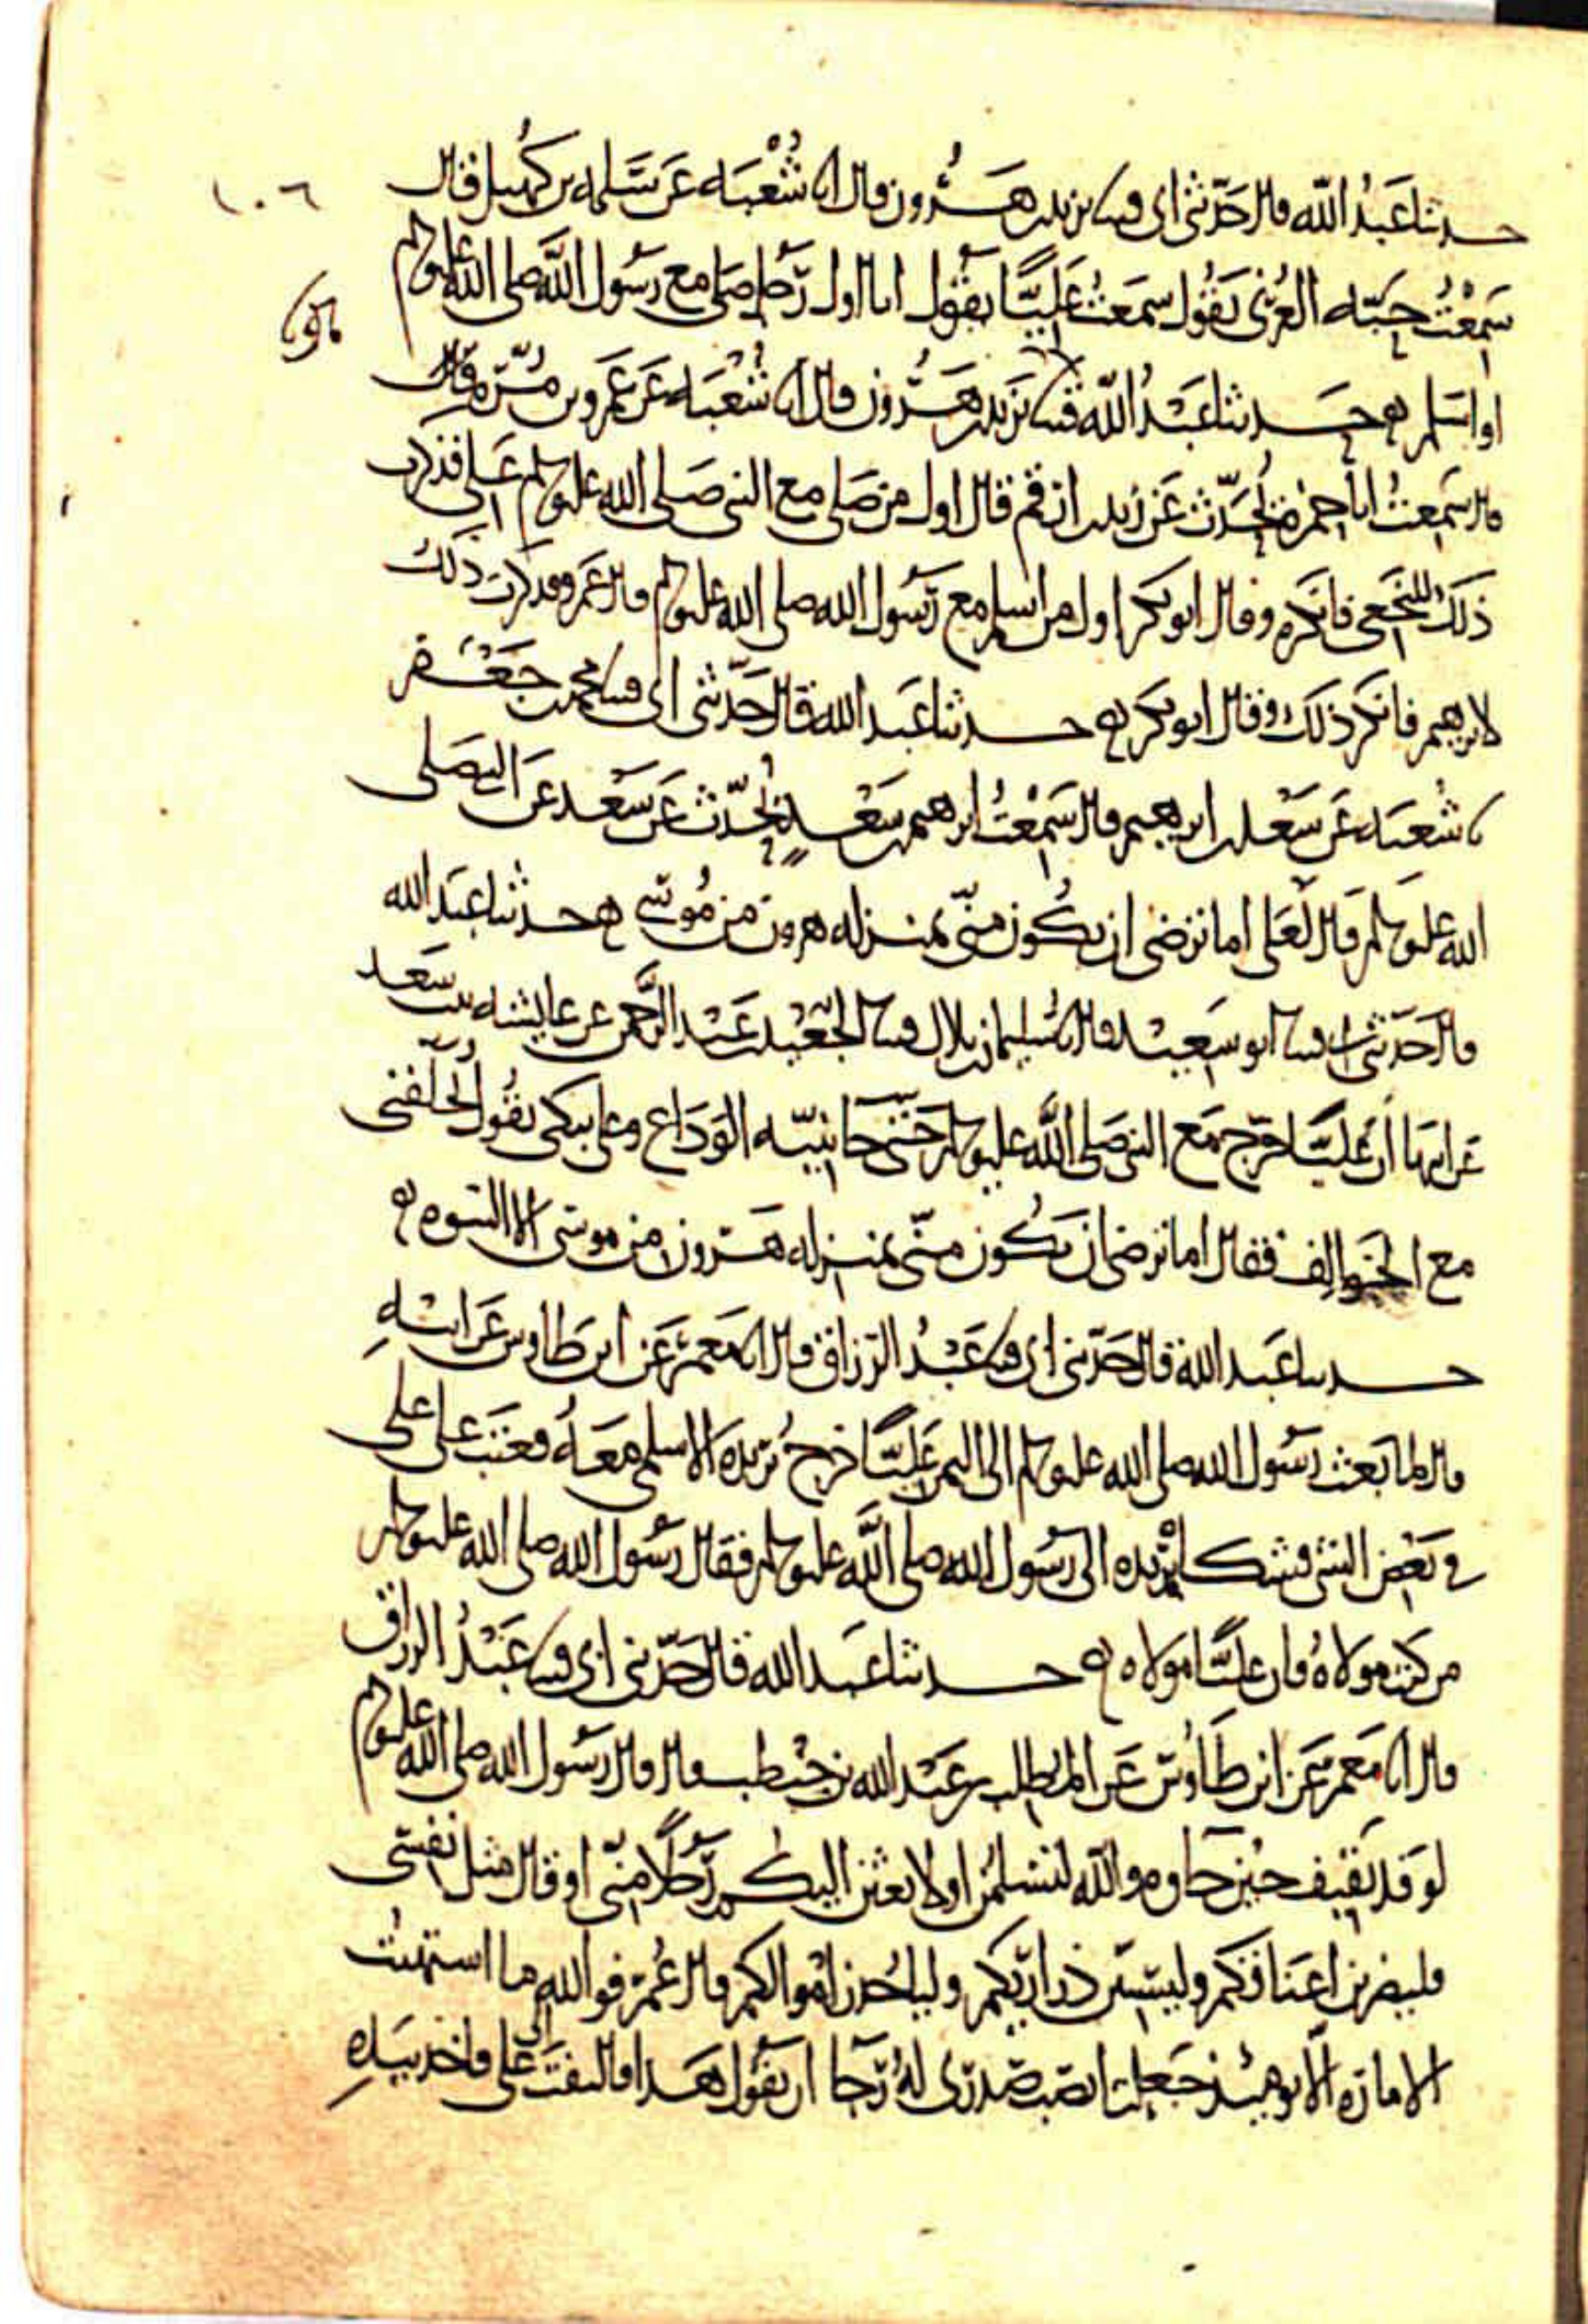 ١٠٦
حدثنا عَبْدُ الله قال حَدّثني ابي قثنا يزيد بن هَرُون قال انا شُعْبَه عَن سَلمه بن كُهيل قال
سَمِعْتُ حَبّه العُرَني يَقُول سَمعْتُ عَليًّا يقُول انا اول رَجل صَلى مع رَسُول الله صلى الله عليه وسلم
او اسْلم حدثنا عَبْدُ الله قثنا يَزيد بن هَرُون قال انا شُعْبَه عَن عَمرو بن مُرّه قال
قال سَمِعْتُ ابا حمزه يُحَدّث عَن زيد بن ارقم قال اول من صَلى مع النبي صَلى الله عليه وسلم عَلي فذكرت
ذلكَ للنخعي فانكره وقال ابو بكر اول من اسلم مع رَسُول الله صلى الله عليه وسلم قال عَمرو فذكرت ذلك
لابرهيم فانكر ذلك وقال ابو بكر حدثنا عَبد الله قال حَدّثني ابي قثنا محمد بن جَعْفر
نا شُعبَه عَن سَعْد بن ابرهيم قال سَمِعْتُ ابرهيم بن سَعْدٍ يُحَدّث عَن سَعْد عَن النبي صَلى
الله عليه وسلم قال لعَلي اما ترضى ان تكُون منّي بمنزله هرون من مُوسَى حدثنا عَبد الله
قال حَدّثني ابي قثنا ابو سَعيْد قال نا سُليمان بن بلال قثنا الجُعَيْد بن عَبْد الرَّحمن عن عايشه بنت سَعد
عَن ابيها أن عَليًّا خرج مَع النبي صَلى الله عليه وسلم حَتى جَا ثنيّه الوَدَاع وعلي يبكي يقُول اتُخَلّفني
مع الخوالِف فقال اما ترضى ان تكُون منّي بمنزله هَرون من موسَى الا النبوه
حدثنا عَبد الله قال حَدّثني ابي قثنا عَبْدُ الرزاق قال انا مَعمرٌ عَن ابن طاوس عَن ابيْهِ
قال لما بَعث رَسُول الله صلى الله عليه وسلم الى اليمن عَليًّا خرجَ بُريده الاسلمي مَعَهُ فعتَب عَلى علي
في بَعْض الشي فشكاه بُريده الى رَسُول الله صلى الله عليه وسلم فقال رَسُول الله صلى الله عليه وسلم
من كنت مولاهُ فان عليًّا مولاه حدثنا عَبد الله قال حَدّثني ابي قثنا عَبْدُ الرزاق
قال انا مَعمر عَن ابن طاوُس عَن المطلب بن عَبْد الله بن حنْطب قال قال رَسُول الله صلى الله عليه وسلم
لوَفد ثقيف حيْن جاوه والله لتسْلمُن او لابعثن اليكم رَجلًا منّي او قال مثل نفسي
فليضربن اعنَاقكم وليسْبين ذراريّكم ولياخُذن امْوالكم قال عُمر فوالله ما اشتهيتُ
الاماره الا يوميْذ جَعلت انصب صَدري لهُ رَجا ان يقُول هَذا فالتفتَ الى علي فاخذ بيَدِهِ